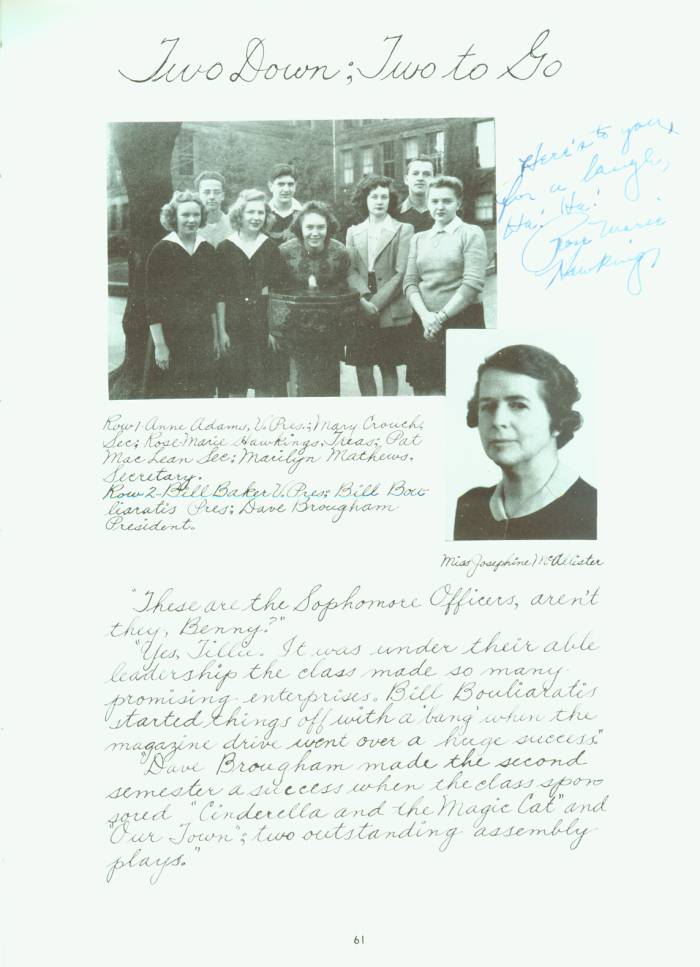 Two Down; Two to Go
Here's to you,
for a laugh,
Ha! Ha!
Rose Marie
Hawkings
Row 1-Anne Adams, V. Pres; Mary Crouch,
Sec; Rose-Marie Hawkings, Treas; Pat
Mac Lean Sec; Marilyn Mathews,
Secretary.
Row 2-Bill Baker V. Pres; Bill Bou-
liaratis Pres; Dave Brougham
President.
Miss Josephine McAllister
"These are the Sophomore Officers, aren't
they, Benny?"
"Yes, Tillie. It was under their able
leadership the class made so many
promising enterprises. Bill Bouliaratis
started things off with a 'bang' when the
magazine drive went over a huge success."
"Dave Brougham made the second
semester a success when the class spon-
sored "Cinderella and the Magic Cat" and
"Our Town"; two outstanding assembly
plays."
61